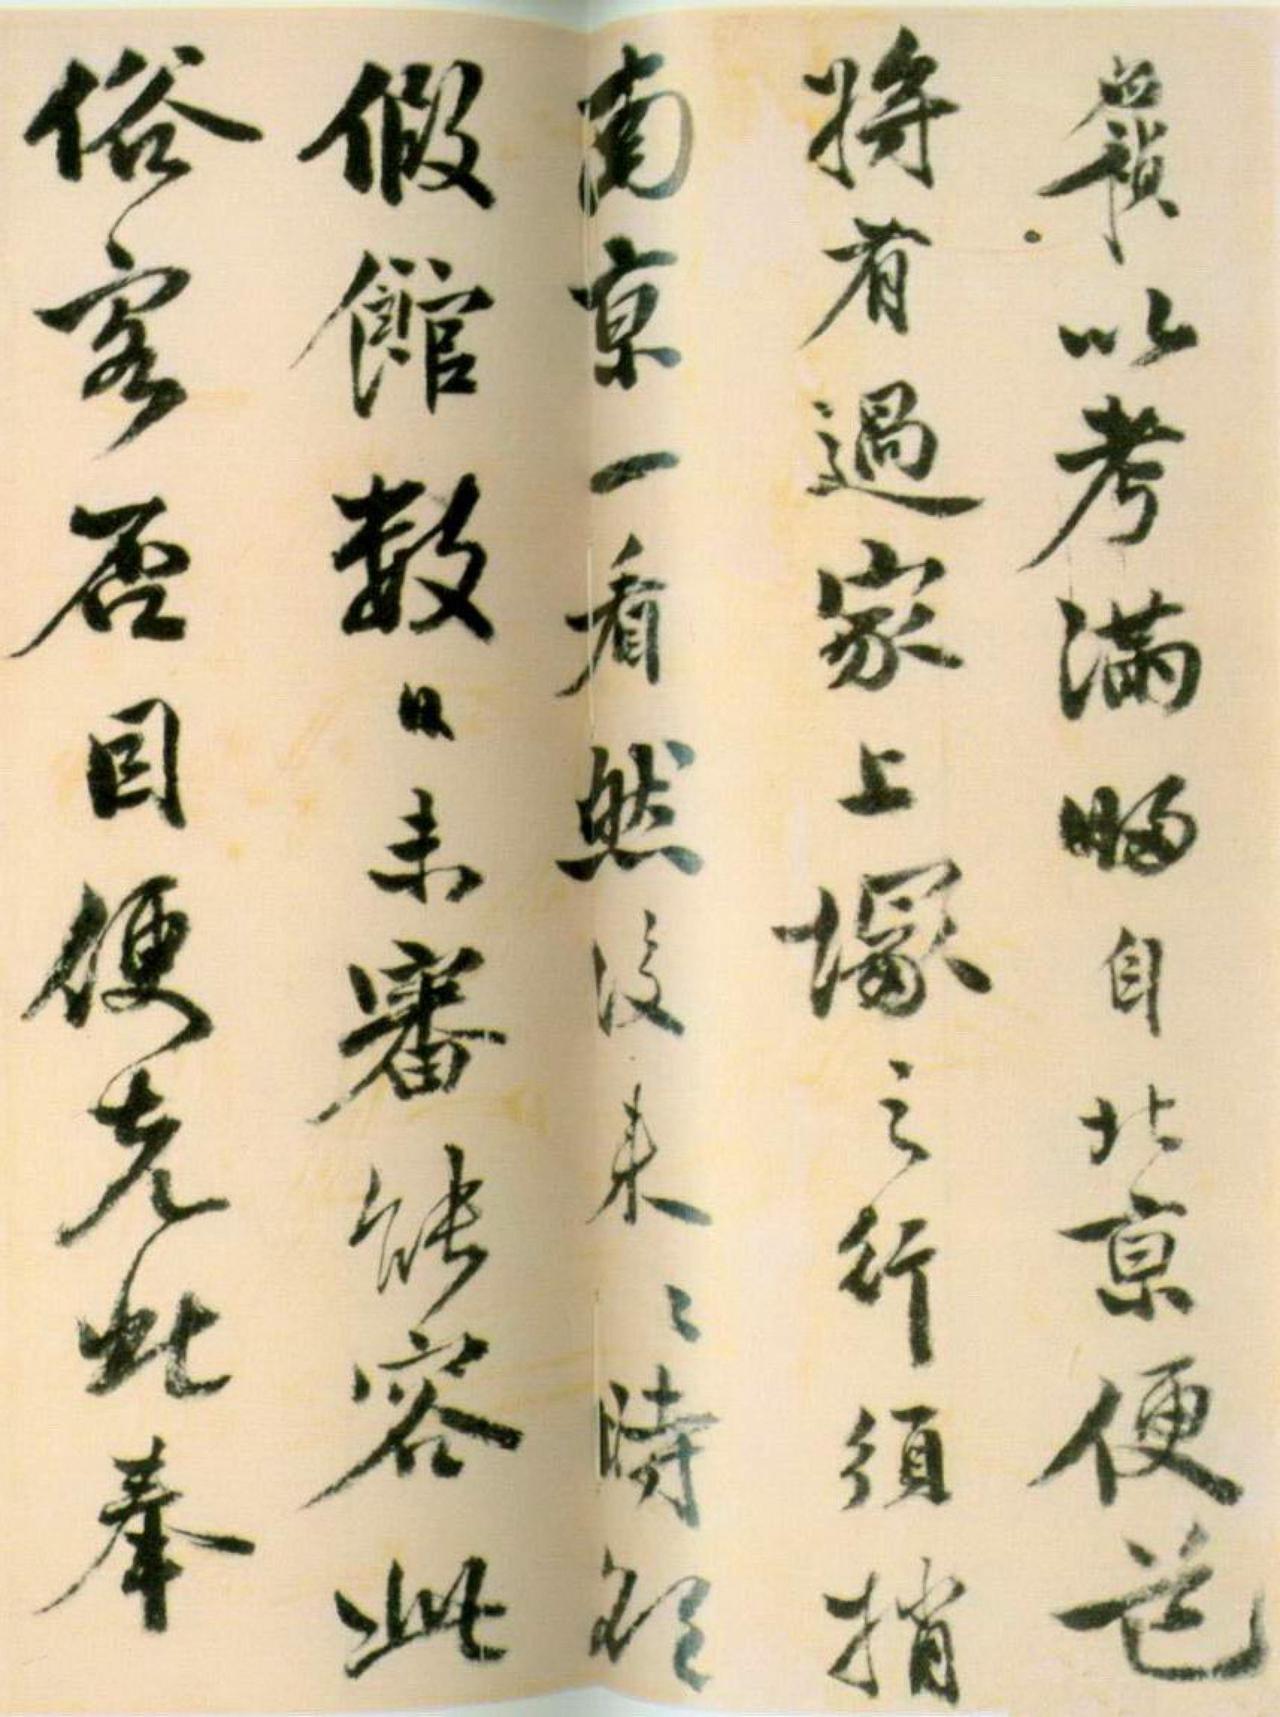 應禎以考滿歸自北京便道
將有過家上塚之行須捎
南京一看然後來〻時
假館數日未審能容此
俗客否因便先此奉